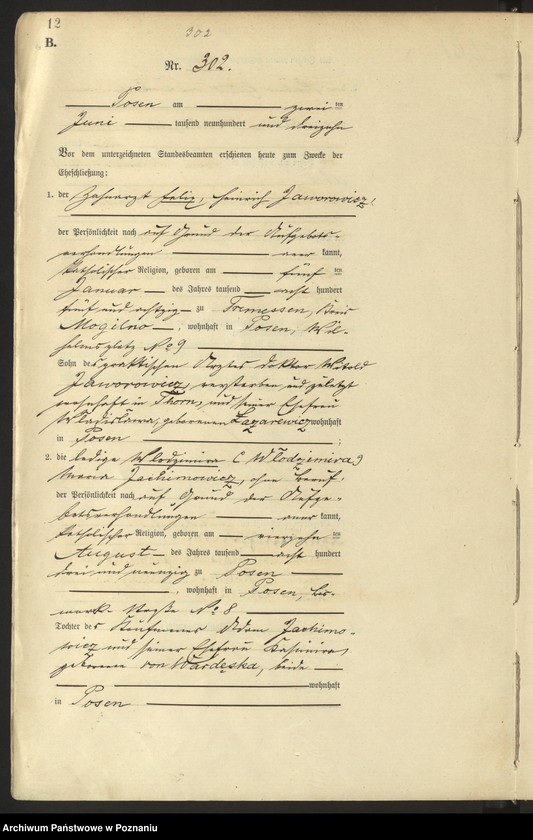 12
302
B.
Nr. 302.
Posen am zwei ten
Juni tausend neunhundert und dreizehn
Vor dem unterzeichneten Standesbeamten erschienen heute zum Zwecke der
Eheschließung:
1. der Zahnarzt Felix, Heinrich Jaworowicz,
der Persönlichkeit nach auf Grund der Aufgebots-
verhandlungen aner kannt,
katholischer Religion, geboren am fünf ten
Januar des Jahres tausend acht hundert
fünf und achtzig zu Tremessen, Kreis
Mogilno, wohnhaft in Posen, Wil-
helmsplatz No 9
Sohn des praktischen Arztes Doktor Witold
Jaworowicz, verstorben und zuletzt
wohnhaft in Thorn, und seiner Ehefrau
Wladislawa, geborenen Lazarewicz wohnhaft
in Posen ;
2. die ledige Wlodzimira (Włodzimira)
Maria Jachimowicz, ohne Beruf,
der Persönlichkeit nach auf Grund der Aufge-
botsverhandlungen aner kannt,
katholischer Religion, geboren am vierzehn ten
August des Jahres tausend acht hundert
drei und neunzig zu Posen
, wohnhaft in Posen, Bis-
marck-Straße No 8
Tochter des Kaufmanns Adam Jachimo-
wicz und seiner Ehefrau Kasimira,
geborene von Wardęska, beide
wohnhaft
in Posen
Archiwum Państwowe w Poznaniu